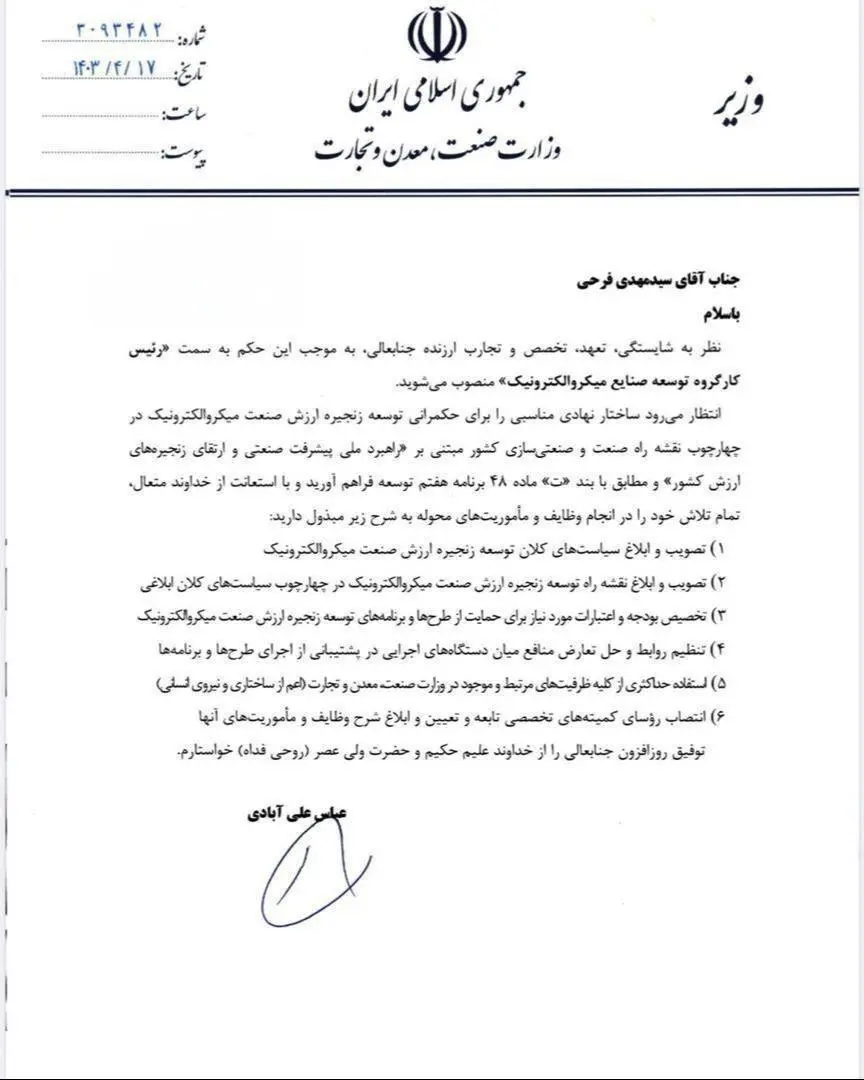 وزیر
جمهوری اسلامی ایران
وزارت صنعت، معدن و تجارت
شماره: ۳۰۹۳۴۸۲
تاریخ: ۱۴۰۳/۴/۱۷
ساعت:
پیوست:
جناب آقای سیدمهدی فرحی
باسلام
نظر به شایستگی، تعهد، تخصص و تجارب ارزنده جنابعالی، به موجب این حکم به سمت «رئیس
کارگروه توسعه صنایع میکروالکترونیک» منصوب می‌شوید.
انتظار می‌رود ساختار نهادی مناسبی را برای حکمرانی توسعه زنجیره ارزش صنعت میکروالکترونیک در
چهارچوب نقشه راه صنعت و صنعتی‌سازی کشور مبتنی بر «راهبرد ملی پیشرفت صنعتی و ارتقای زنجیره‌های
ارزش کشور» و مطابق با بند «ت» ماده ۴۸ برنامه هفتم توسعه فراهم آورید و با استعانت از خداوند متعال،
تمام تلاش خود را در انجام وظایف و مأموریت‌های محوله به شرح زیر مبذول دارید:
۱) تصویب و ابلاغ سیاست‌های کلان توسعه زنجیره ارزش صنعت میکروالکترونیک
۲) تصویب و ابلاغ نقشه راه توسعه زنجیره ارزش صنعت میکروالکترونیک در چهارچوب سیاست‌های کلان ابلاغی
۳) تخصیص بودجه و اعتبارات مورد نیاز برای حمایت از طرح‌ها و برنامه‌های توسعه زنجیره ارزش صنعت میکروالکترونیک
۴) تنظیم روابط و حل تعارض منافع میان دستگاه‌های اجرایی در پشتیبانی از اجرای طرح‌ها و برنامه‌ها
۵) استفاده حداکثری از کلیه ظرفیت‌های مرتبط و موجود در وزارت صنعت، معدن و تجارت (اعم از ساختاری و نیروی انسانی)
۶) انتصاب رؤسای کمیته‌های تخصصی تابعه و تعیین و ابلاغ شرح وظایف و مأموریت‌های آنها
توفیق روزافزون جنابعالی را از خداوند علیم حکیم و حضرت ولی عصر (روحی فداه) خواستارم.
عباس علی آبادی